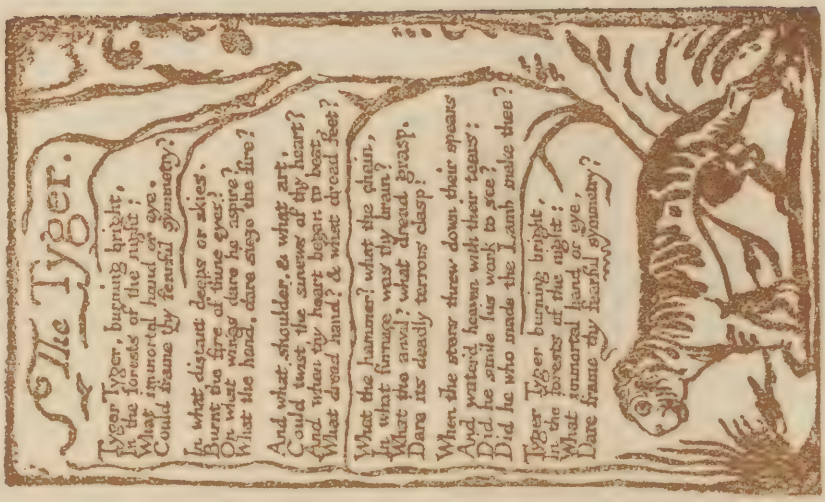 The Tyger.
Tyger Tyger, burning bright,
In the forests of the night;
What immortal hand or eye,
Could frame thy fearful symmetry?
In what distant deeps or skies.
Burnt the fire of thine eyes?
On what wings dare he aspire?
What the hand, dare sieze the fire?
And what shoulder, & what art,
Could twist the sinews of thy heart?
And when thy heart began to beat,
What dread hand? & what dread feet?
What the hammer? what the chain,
In what furnace was thy brain?
What the anvil? what dread grasp.
Dare its deadly terrors clasp!
When the stars threw down their spears
And water'd heaven with their tears:
Did he smile his work to see?
Did he who made the Lamb make thee?
Tyger Tyger burning bright,
In the forests of the night:
What immortal hand or eye,
Dare frame thy fearful symmetry?